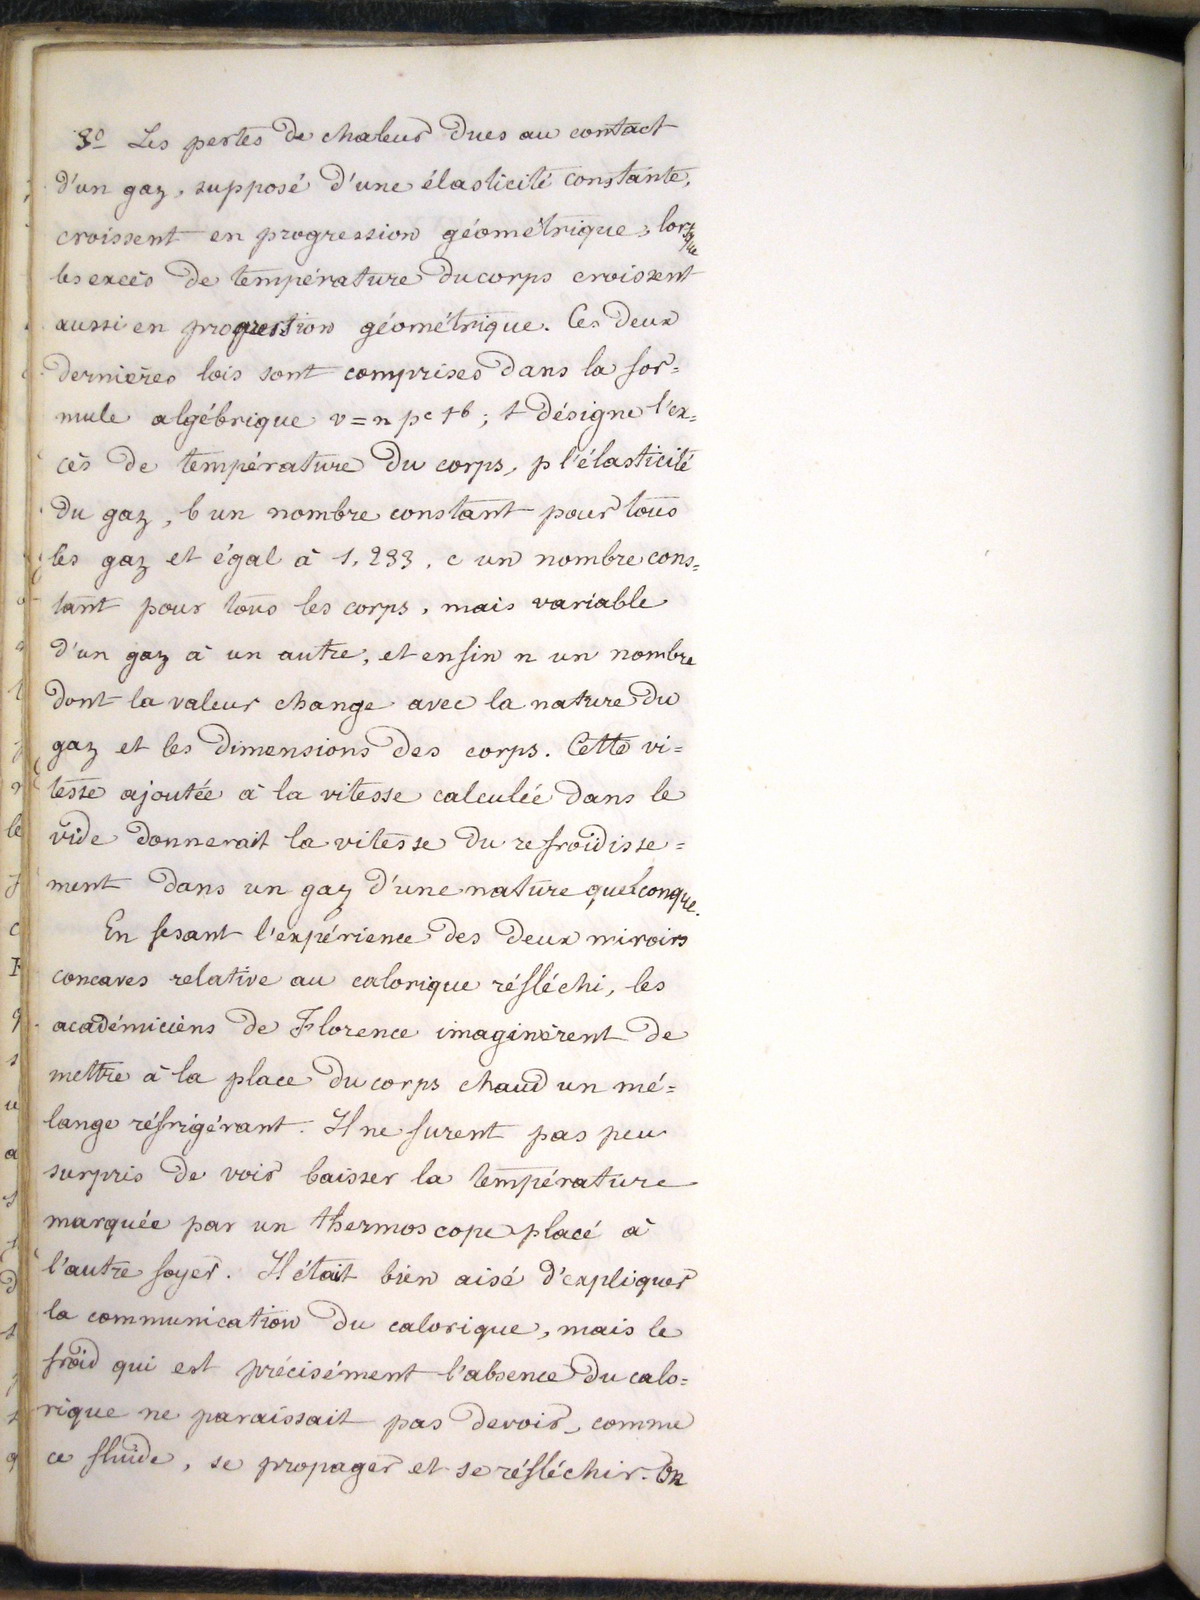 3º Les pertes de chaleur dues au contact
d'un gaz, supposé d'une élasticité constante,
croissent en progression géométrique, lorsque
les excès de température du corps croissent
aussi en progression géométrique. Ces deux
dernières lois sont comprises dans la for=
mule algébrique v=n pᶜ tᵇ ; t désigne l'ex=
cès de température du corps, p l'élasticité
du gaz, b un nombre constant pour tous
les gaz et égal à 1,233, c un nombre cons=
tant pour tous les corps, mais variable
d'un gaz à un autre, et enfin n un nombre
dont la valeur change avec la nature du
gaz et les dimensions des corps. Cette vi=
tesse ajoutée à la vitesse calculée dans le
vide donnerait la vitesse du refroidisse=
ment dans un gaz d'une nature quelconque.
En fesant l'expérience des deux miroirs
concaves relative au calorique réfléchi, les
académiciens de Florence imaginèrent de
mettre à la place du corps chaud un mé=
lange réfrigérant. Il ne furent pas peu
surpris de voir baisser la température
marquée par un thermoscope placé à
l'autre foyer. Il était bien aisé d'expliquer
la communication du calorique, mais le
froid qui est précisément l'absence du calo=
rique ne paraissait pas devoir, comme
ce fluide, se propager et se réfléchir. On